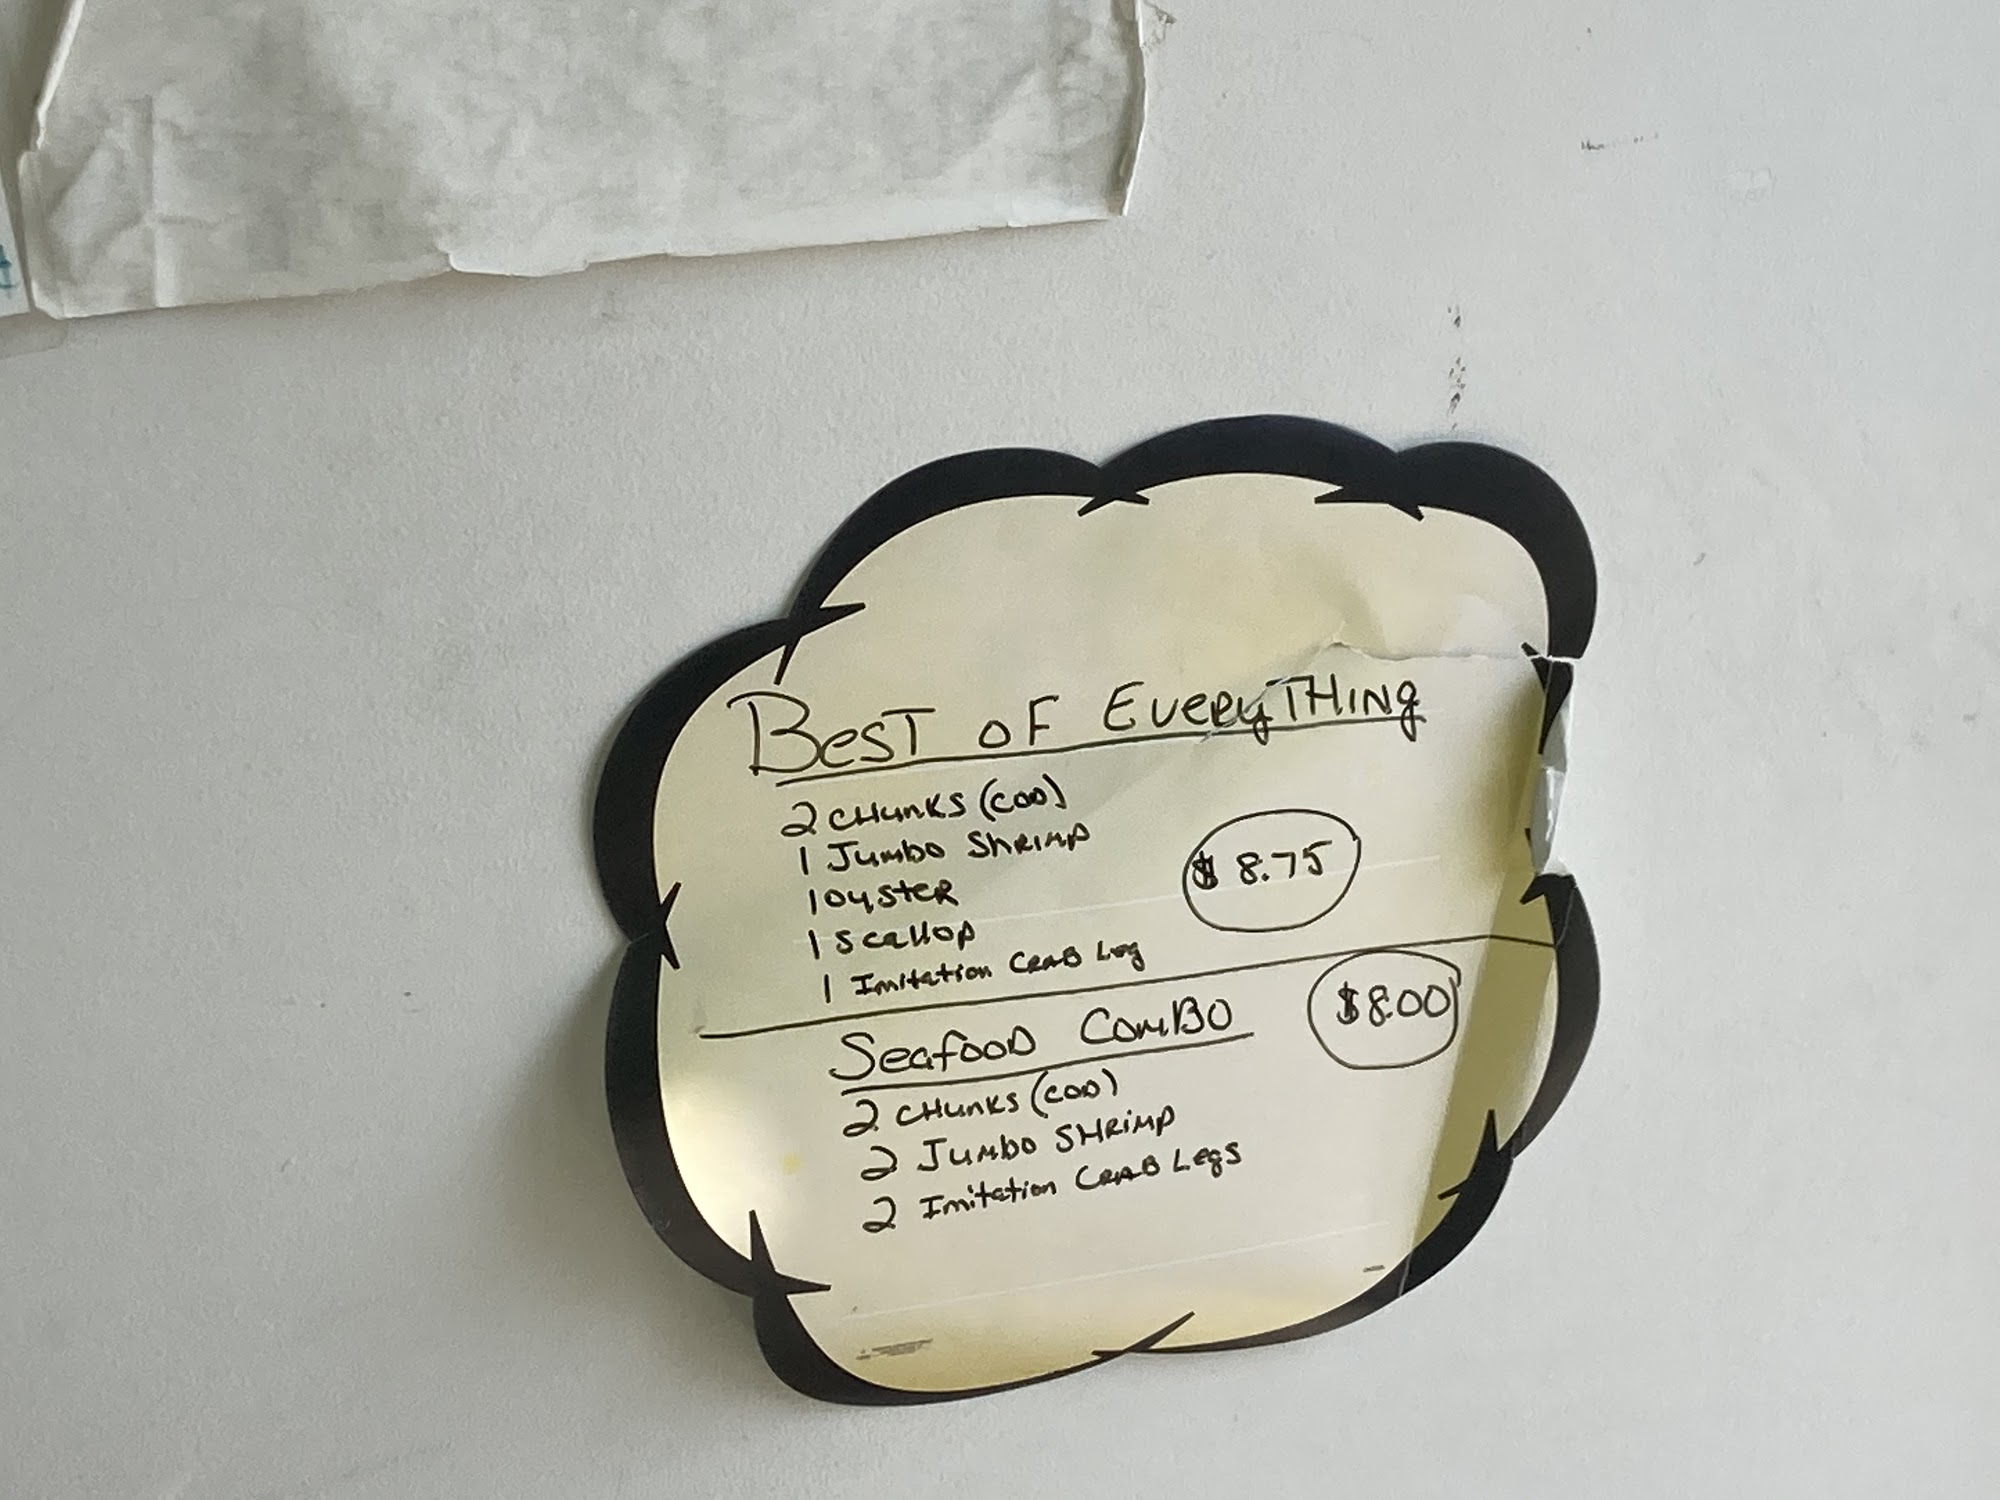 BesT oF EveryTHing
2 CHunKS (COD)
1 Jumbo ShRimp
1 OysteR
1 Scallop
$ 8.75
1 Imitation CRAB Leg
SeafooD ComBO
$8.00
2 CHunKS (COD)
2 Jumbo SHRimp
2 Imitation CRAB Legs